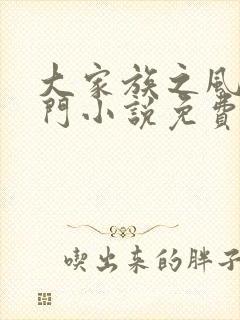 大家族之風
門小說免費
喫出來的胖子